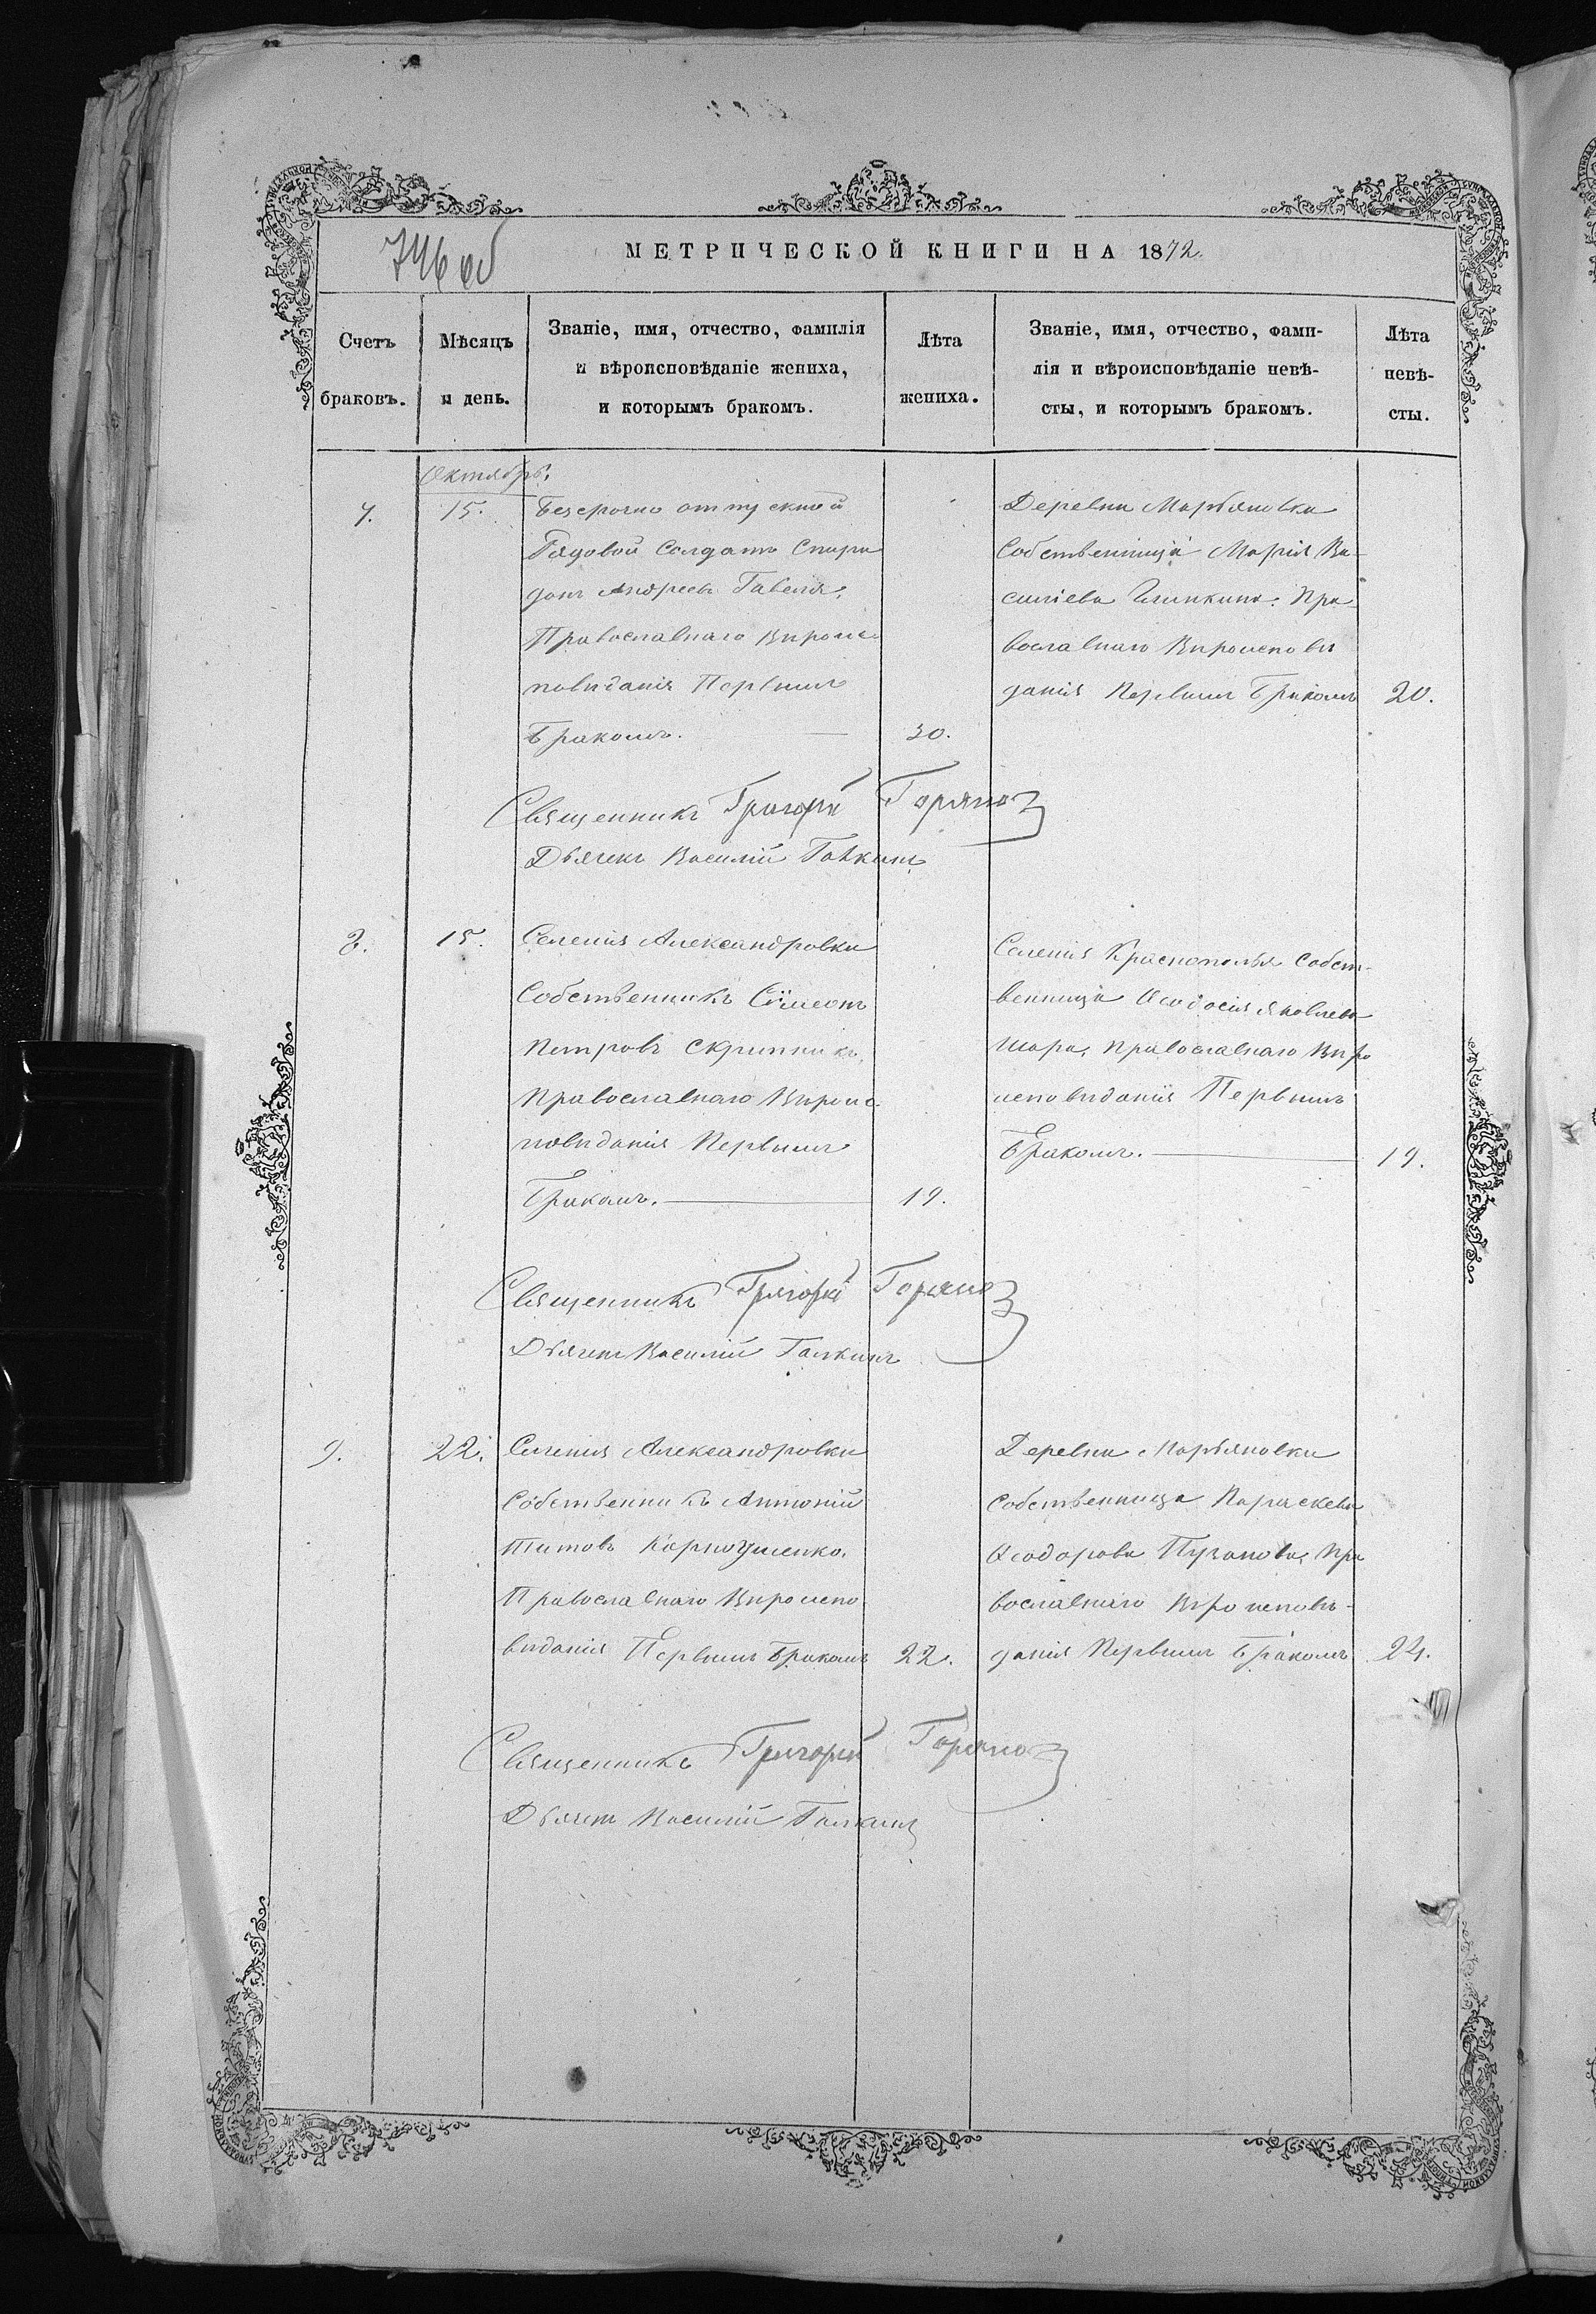 746 об
МЕТРИЧЕСКОЙ КНИГИ НА 1872.
Счетъ браковъ.
Мѣсяцъ и день.
Званіе, имя, отчество, фамилія
и вѣроисповѣданіе жениха,
и которымъ бракомъ.
Лѣта жениха.
Званіе, имя, отчество, фами-
лія и вѣроисповѣданіе невѣ-
сты, и которымъ бракомъ.
Лѣта невѣ-
сты.
Октябрь.
7.
15.
Безсрочно отпускной
Рядовой Солдатъ Спири
донъ Андреевъ
Православнаго Вѣроис-
повѣданія Первымъ
Бракомъ.
30.
Деревни Марьяновки
Собственница Марія Ва-
силіева Пра-
вославнаго Вѣроисповѣ
данія Первымъ Бракомъ
20.
Священникъ Григорій
Дьячекъ Василій Галкинъ
8.
15.
Селенія Александровки
Собственникъ Сѵмеонъ
Петровъ Скрипникъ,
Православнаго Вѣроис-
повѣданія Первымъ
Бракомъ.
19.
Селенія Краснополья Собст-
венница Ѳеодосія Яковлева
Шара, Православнаго Вѣро
исповѣданія Первымъ
Бракомъ.
19.
Священникъ Григорій
Дьячекъ Василій Галкинъ
9.
22.
Селенія Александровки
Собственникъ Антоній
Титовъ Карноушенко,
Православнаго Вѣроиспо
вѣданія Первымъ Бракомъ
22.
Деревни Марьяновки
Собственница Параскева
Ѳеодорова Пузанова, Пра
вославнаго Вѣроисповѣ-
данія Первымъ Бракомъ
24.
Священникъ Григорій
Дьячекъ Василій Галкинъ